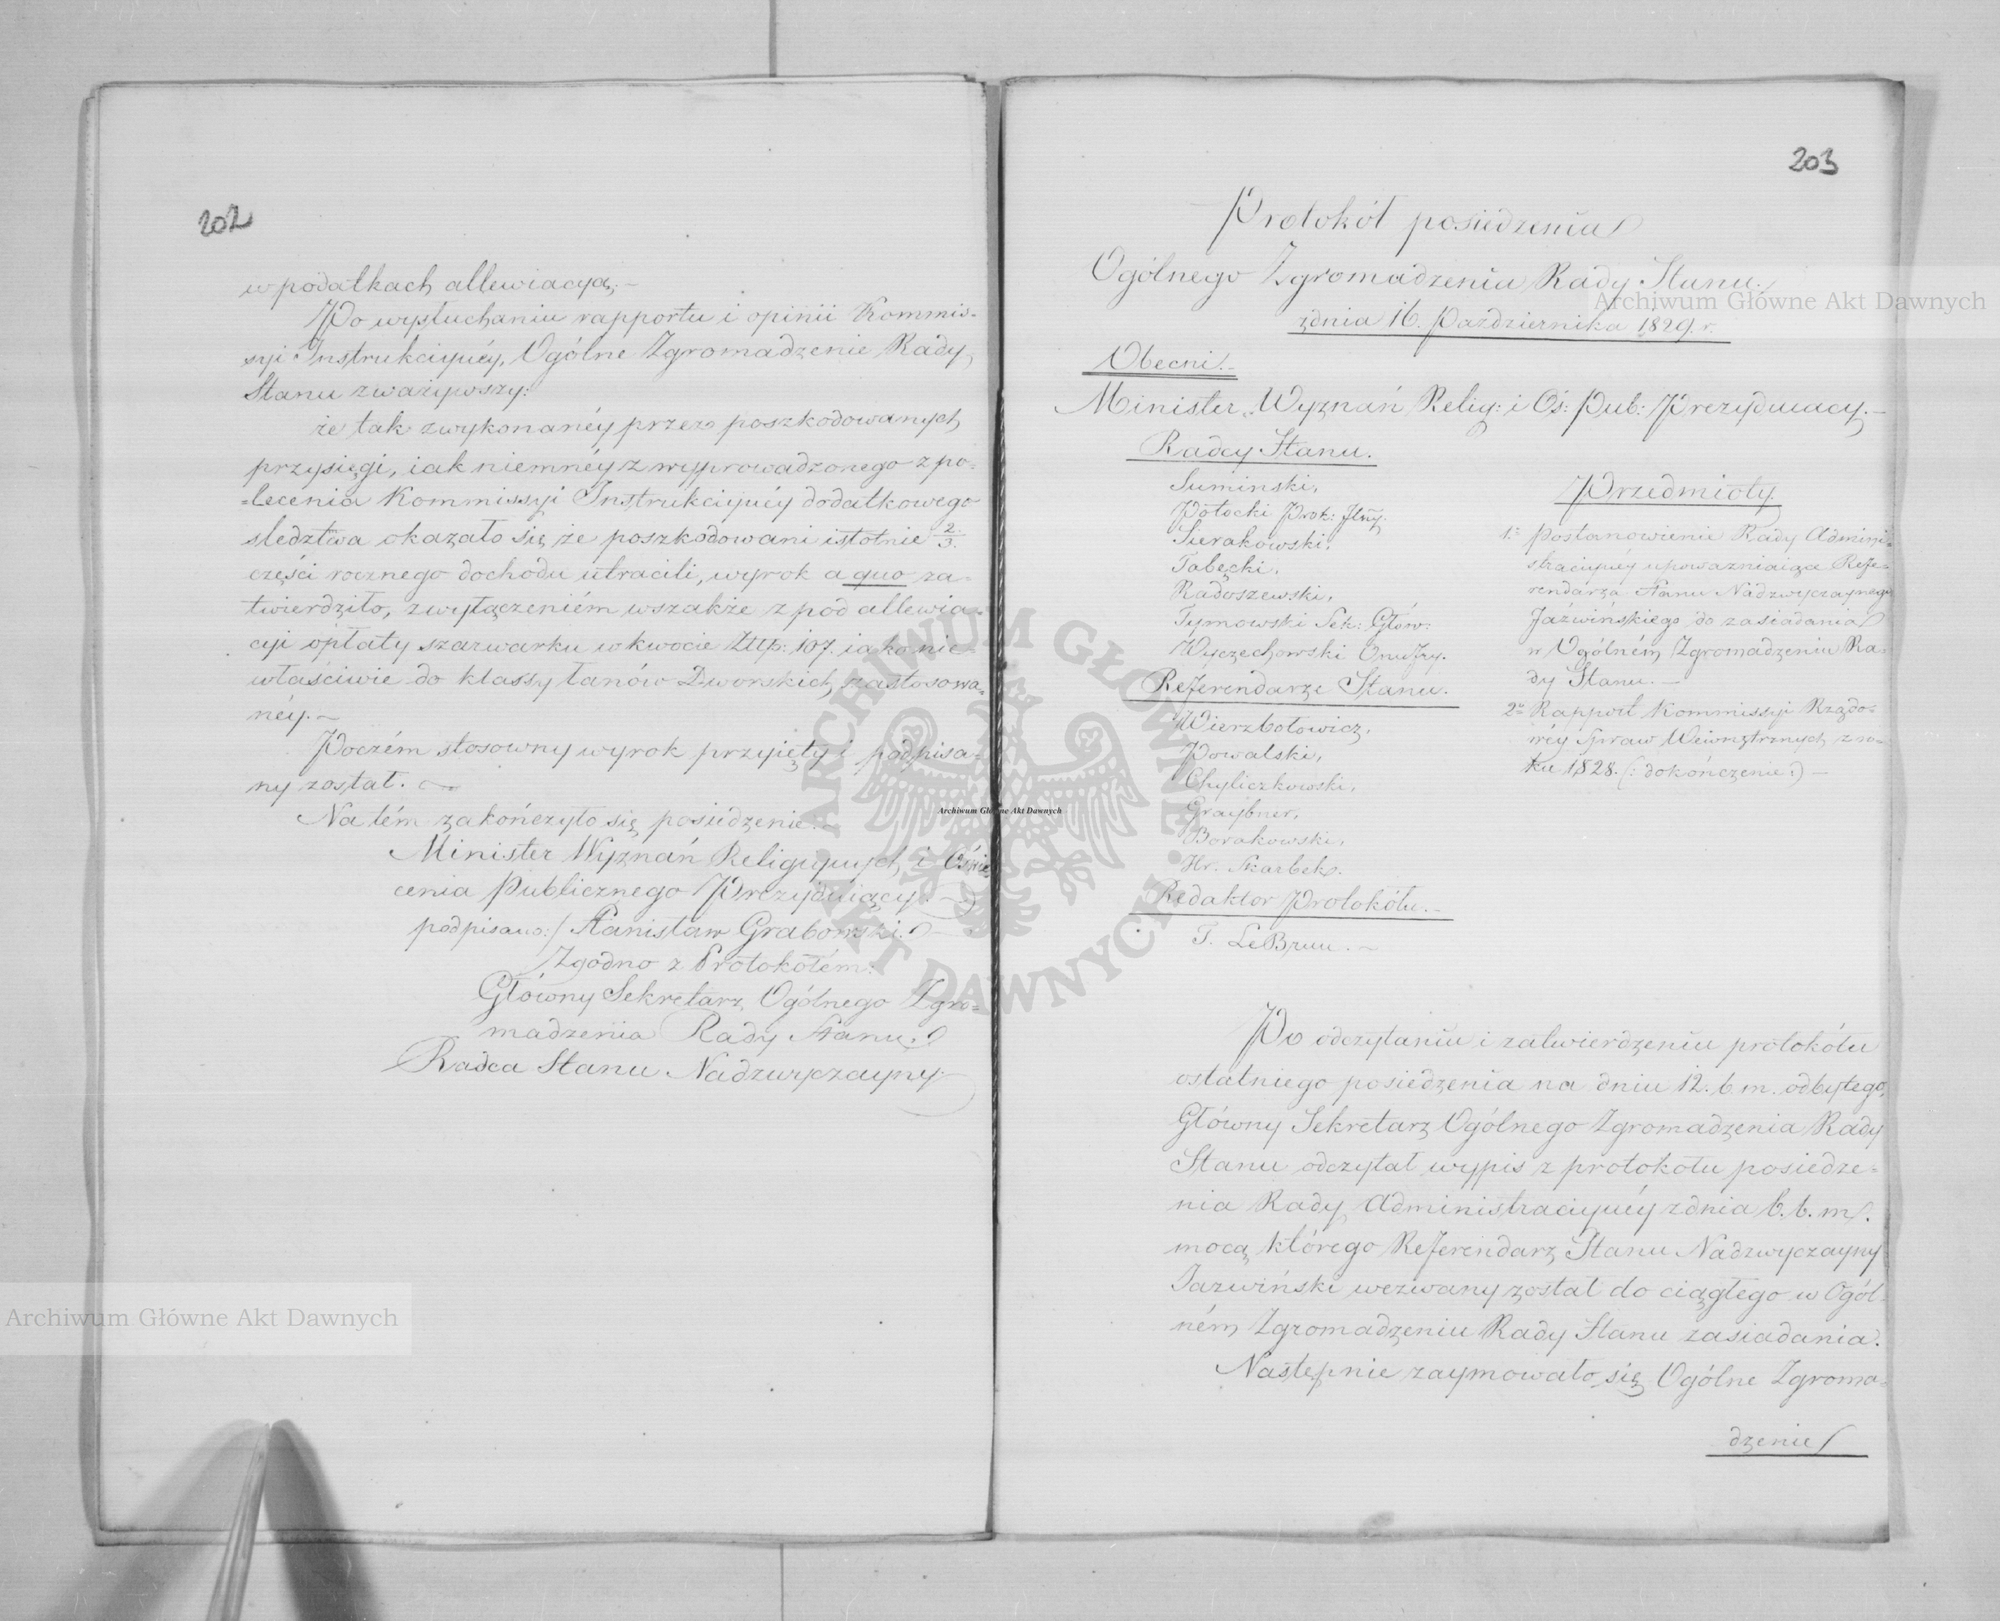 202
w podatkach allewiacyą. —
Po wysłuchaniu rapportu i opinii Kommis-
syi Instrukcyynéy, Ogólne Zgromadzenie Rady
Stanu zważywszy:
że tak z wykonanéy przez poszkodowanych
przysięgi, iak niemnéy z wyprowadzonego z po-
=lecenia Kommissyi Instrukcyynéy dodatkowego
śledztwa okazało się że poszkodowani istotnie 2/3
części rocznego dochodu utracili, wyrok a quo za-
twierdziło, z wyłączeniém wszakże z pod allewia-
cyi opłaty szarwarku w kwocie Złtp: 107. iako nie-
właściwie do klassy łanów Dworskich zastosowa-
néy. —
Poczém stosowny wyrok przyięty i podpisa-
ny został. —
Na tém zakończyło się posiedzenie. —
Minister Wyznań Religiynych i Oświe-
cenia Publicznego Prezyduiący. —
podpisano:/ Stanisław Grabowski. —
Zgodno z Protokółem:
Główny Sekretarz Ogólnego Zgro-
madzenia Rady Stanu.
Radca Stanu Nadzwyczayny.
203
Protokół posiedzenia
Ogólnego Zgromadzenia Rady Stanu.
z dnia 16. Października 1829. r.
Obecni. —
Minister Wyznań Relig: i Oś: Pub: Prezyduiacy. —
Radcy Stanu.
Sumiński,
Potocki Prok: Jlny.
Sierakowski,
Tabęcki,
Radoszewski,
Tymowski Sek: Głów:
Wyczechowski Onufry.
Referendarze Stanu.
Wierzbołowicz,
Powalski,
Chyliczkowski,
Graybner,
Borakowski,
Hr. Skarbek.
Redaktor Protokółu. —
T. LeBrun. —
Przedmioty.
1° Postanowienie Rady Admini-
stracyynéy upoważniaiące Refe-
rendarza Stanu Nadzwyczaynego
Jaźwińskiego do zasiadania
w Ogólném Zgromadzeniu Ra-
dy Stanu. —
2° Rapport Kommissyi Rządo-
wéy Spraw Wewnętrznych z ro-
ku 1828. (: dokończenie :) —
Po odczytaniu i zatwierdzeniu protokółu
ostatniego posiedzenia na dniu 12. b. m. odbytego,
Główny Sekretarz Ogólnego Zgromadzenia Rady
Stanu odczytał wypis z protokołu posiedze-
nia Rady Administracyynéy z dnia 6. b. m.
mocą którego Referendarz Stanu Nadzwyczayny
Jazwiński wezwany został do ciągłego w Ogól-
ném Zgromadzeniu Rady Stanu zasiadania.
Następnie zaymowało się Ogólne Zgroma-
dzenie
Archiwum Główne Akt Dawnych
Archiwum Główne Akt Dawnych
Archiwum Główne Akt Dawnych
ARCHIWUM GŁÓWNE AKT DAWNYCH